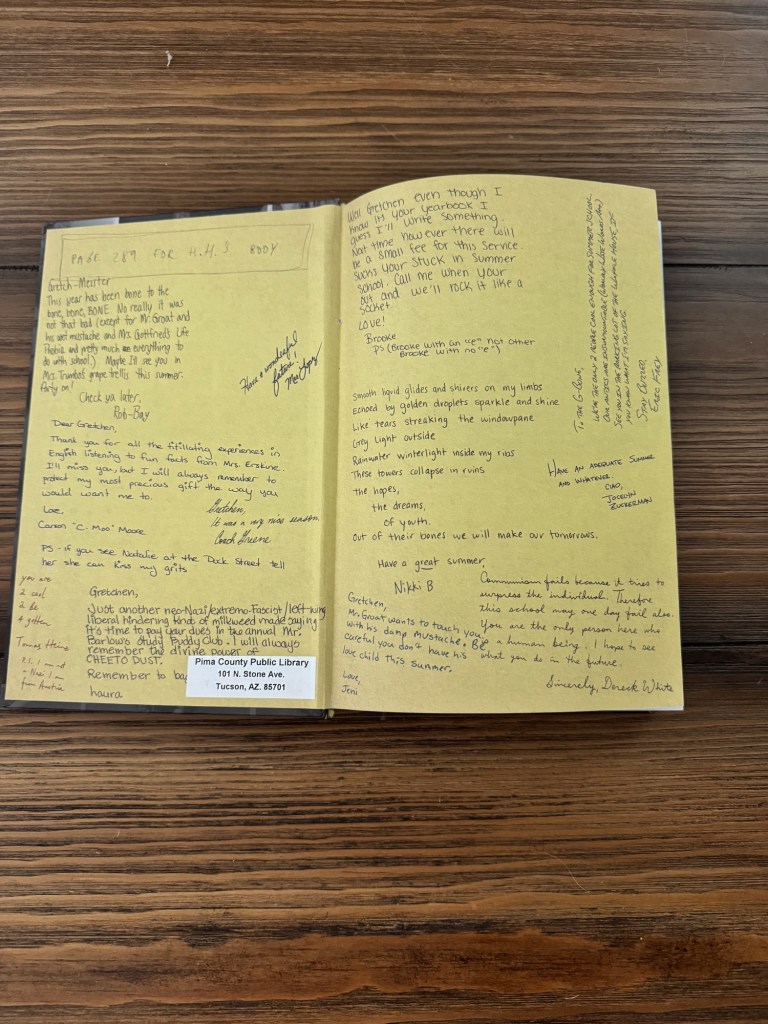 PAGE 287 FOR H.H.S BODY
Gretch-Meister
This year has been bone to the
bone, bone, BONE. No really it was
not that bad (except for Mr. Groat and
his wet mustache and Mrs. Gottfried's Life
Phobia and pretty much everything to
do with school.) Maybe I'll see you in
Mrs. Trumbo's grape trellis this summer.
Party on!
Check ya later,
Rob-Bay
Have a wonderful
future!
Dear Gretchen,
Thank you for all the titillating experiences in
English listening to fun facts from Mrs. Erskine.
I'll miss you, but I will always remember to
protect my most precious gift the way you
would want me to.
Love,
Canon "C. Moo" Moore
Gretchen,
It was a very nice season.
Coach Greene
PS - if you see Natalie at the Dock Street tell
her she can kiss my grits
you are
2 cool
2 be
4 gotten
Tomas Heine
P.S. I am not
a Nazi I am
from Austria
Gretchen,
Just another neo-Nazi/extremo-Fascist/left wing
liberal hindering kind of milkweed maid saying
it's time to pay your dues in the annual Mr.
Barlow's Study Buddy Club. I will always
remember the divine power of
CHEETO DUST.
Remember to
haura
Pima County Public Library
101 N. Stone Ave.
Tucson, AZ. 85701
Well Gretchen even though I
know it's your yearbook I
guess I'll write something.
Next time however there will
be a small fee for this service.
Sucks your stuck in Summer
School. Call me when your
out and we'll rock it like a
socket.
LOVE!
Brooke
PS (Brooke with an "e" not other
Brooke with no "e")
To the G-Lowe,
We're the only 2 people cool enough for summer school
Our antics are
See you in the parking lot of the Waffle House, if
you know what I'm saying.
Stay Cutlized,
Enzo
Smooth liquid glides and shivers on my limbs
Echoed by golden droplets sparkle and shine
Like tears streaking the windowpane
Grey light outside
Rainwater winterlight inside my ribs
These towers collapse in ruins
The hopes,
the dreams,
of youth.
Out of their bones we will make our tomorrows.
Have a great summer,
Nikki B
Have an adequate summer
and whatever.
Ciao,
Jocelyn
Zuckerman
Gretchen,
Mr. Groat wants to touch you
with his damp mustache. Be
careful you don't have his
love child this summer.
Love,
Jeni
Communism fails because it tries to
surpress the individual. Therefore
this school may one day fail also.
You are the only person here who
is a human being. I hope to see
what you do in the future.
Sincerely, Dereck White